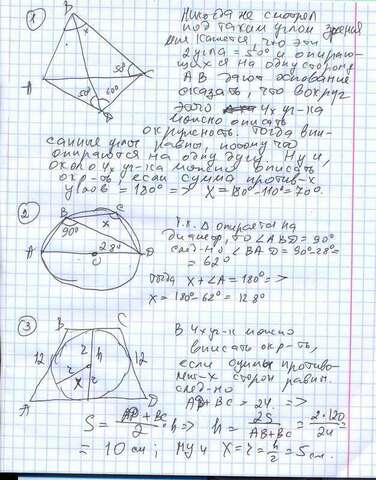 ① В
Никогда не смотрел
под таким углом зрения
Мне кажется, что эти
2 угла = 50° и опираю-
щихся на одну сторону
АВ дают основание
сказать, что вокруг
этого 4х уг-ка
можно описать
окружность. Тогда впи-
санные углы равны, потому что
опираются на одну дугу. Ну и,
около 4х уг-ка можно описать
окр-ть, если сумма против-х
углов = 180° => X = 180° - 110° = 70°.
x
50°
А
50° 60°
②
В С
90° x
А 28° D
O
Т.к. Δ опирается на
диаметр, то ∠ABD = 90°
след-но ∠BAD = 90° - 28° =
= 62°
тогда x + ∠A = 180° =>
x = 180° - 62° = 128°
③ В С
12 r h 12
r x r
А D
В 4х уг-к можно
вписать окр-ть,
если суммы противо-
лежащих сторон равны.
след-но
AD + BC = 24. =>
S = (AD + BC)/2 · h => h = 2S/(AB + BC) = 2·120/24 =
= 10 см; Ну и X = r = h/2 = 5 см.